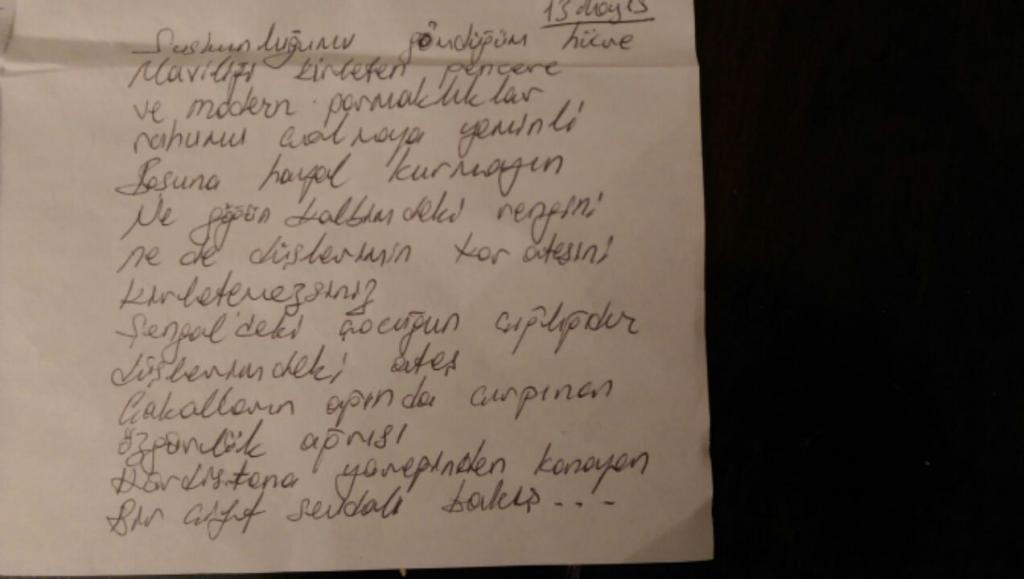 13 Mayıs
Suskunluğunu gömdüğüm hücre
Maviliği kirleten pencere
ve modern parmaklıklar
ruhumu çalmaya yeminli
Boşuna hayal kurmayın
Ne göğün kalbimdeki rengini
ne de düşlerimin kor ateşini
kirletemezsiniz
Şengal'deki çocuğun çığlığıdır
düşlerimdeki ateş
Çakalların ağında çırpınan
özgürlük ağrısı
Kürdistana yüreğinden kanayan
Bir çift sevdalı bakış...